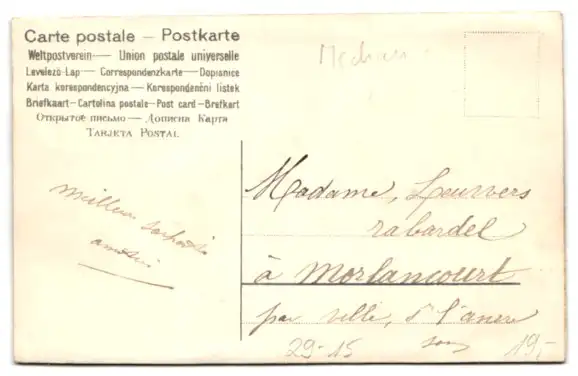 Carte postale – Postkarte
Weltpostverein — Union postale universelle
Levelező-Lap — Correspondenzkarte — Dopisnice
Karta korespondencyjna — Korespondenční lístek
Briefkaart — Cartolina postale — Post card — Brefkort
Открытое письмо — Дописна Карта
Tarjeta Postal
Madame,
rabardel
à Morlancourt
par ville, d l'ancre
som
29-15
19,-
meilleur